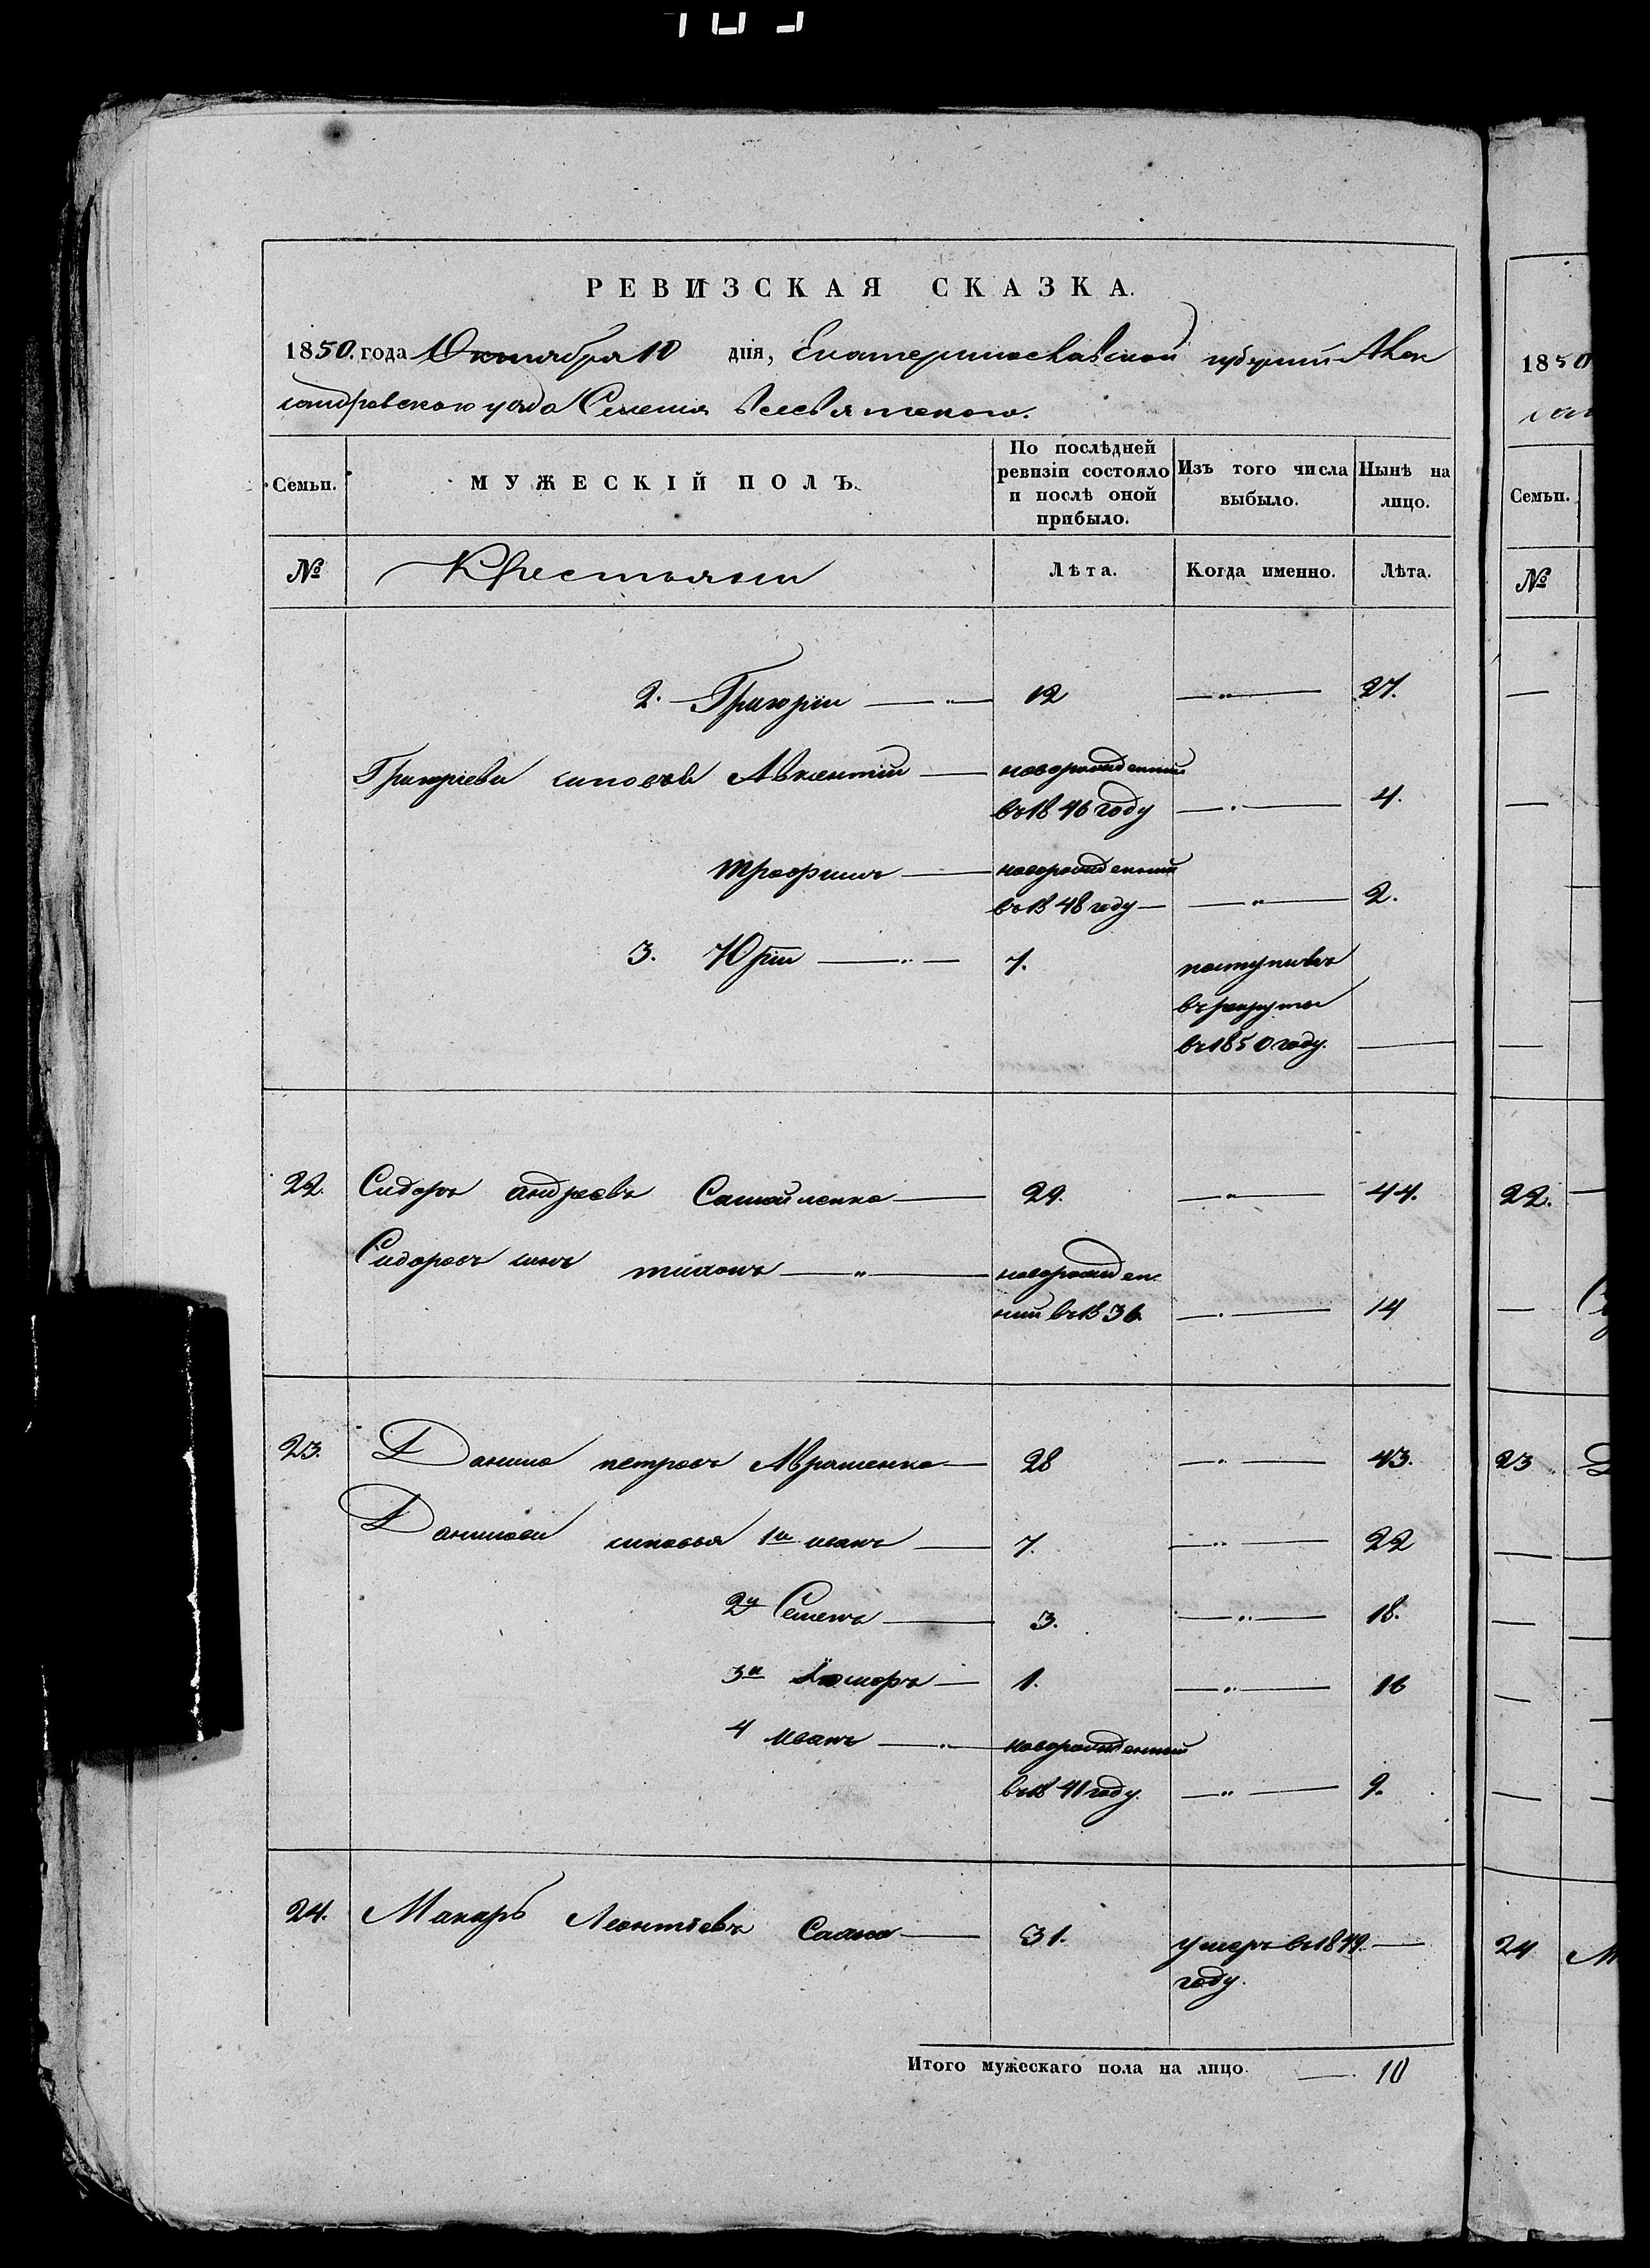 РЕВИЗСКАЯ СКАЗКА.
1850. года Октября 10 дня, Екатеринославской губернии Алек
сандровского уезда Селения Всесвятского.
Семьи. МУЖЕСКІЙ ПОЛЪ. По послѣдней ревизіи состояло и послѣ оной прибыло. Изъ того числа выбыло. Нынѣ на лицо.
№ Крестьяни Лѣта. Когда именно. Лѣта.
2. Григорій 12 27.
Григоріеви синовья Авксентій новорожденний
въ 1846 году 4.
Трофимъ новорожденний
въ 1848 году 2.
3. Юрій 7. поступивъ
въ рекруты
въ 1850 году.
22. Сидоръ Андреевъ Самойленко 29. 44.
Сидоровъ синъ Тихонъ новорожден
ний въ 1836. 14
23. Данило Петровъ Авраменко 28 43.
Данилови синовья 1й Иванъ 7. 22
2й Семенъ 3. 18.
3й 1. 16
4 Иванъ новорожденний
въ 1841 году. 9.
24. Макаръ Леонтіевъ 31. умеръ въ 1849.
году.
Итого мужескаго пола на лицо 10
1850
Семьи.
№
22.
23
24 М